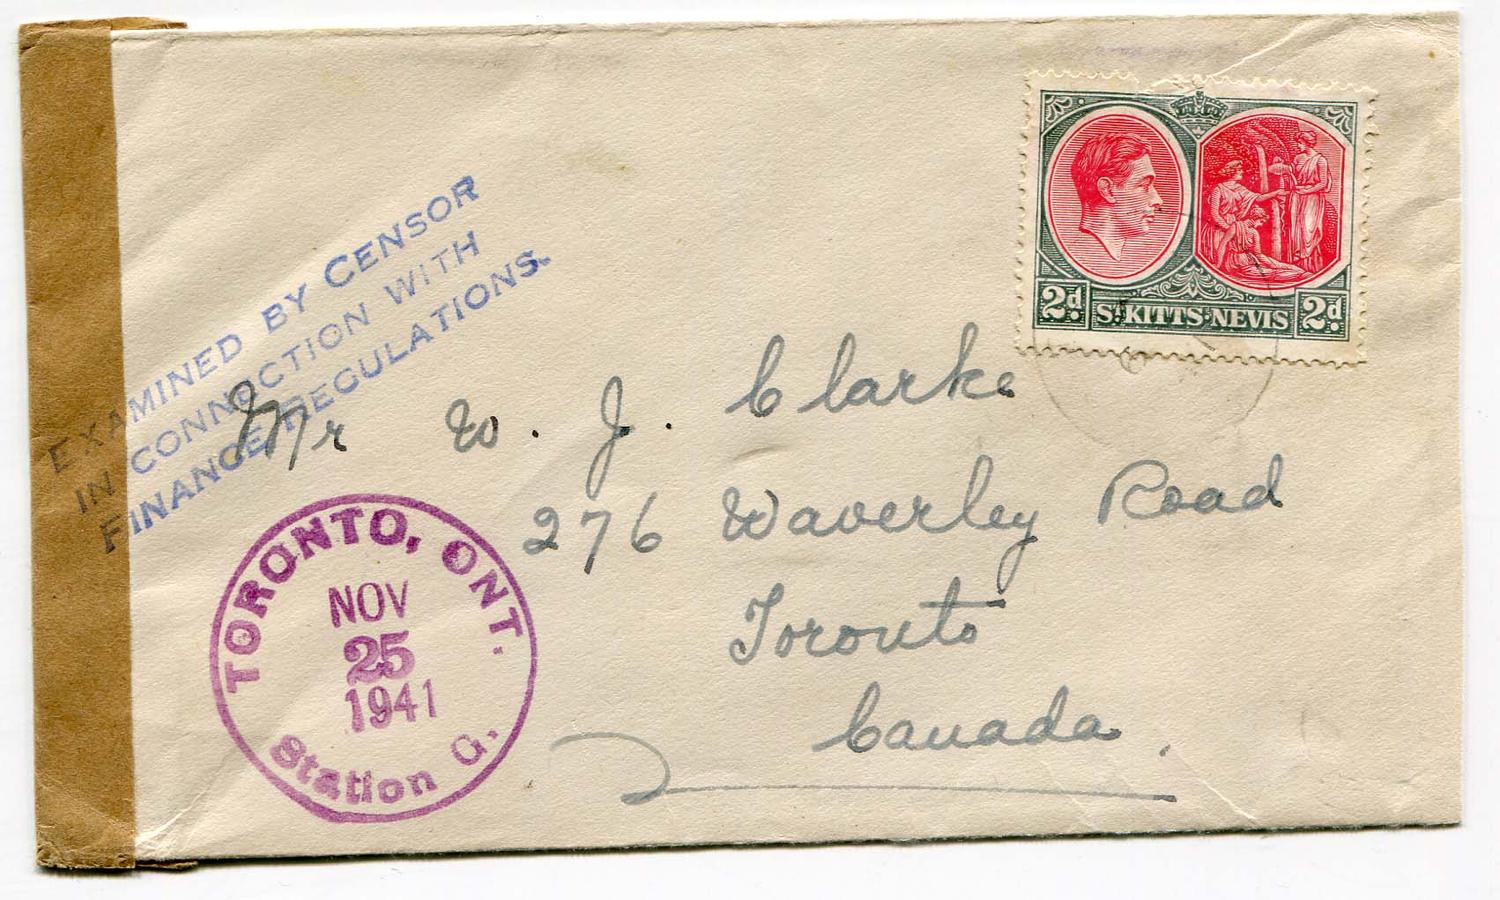 EXAMINED BY CENSOR
IN CONNECTION WITH
FINANCE REGULATIONS.
2d ST KITTS·NEVIS 2d
Mr W. J. Clarke
276 Waverley Road
Toronto
Canada.
TORONTO, ONT.
NOV
25
1941
Station G.